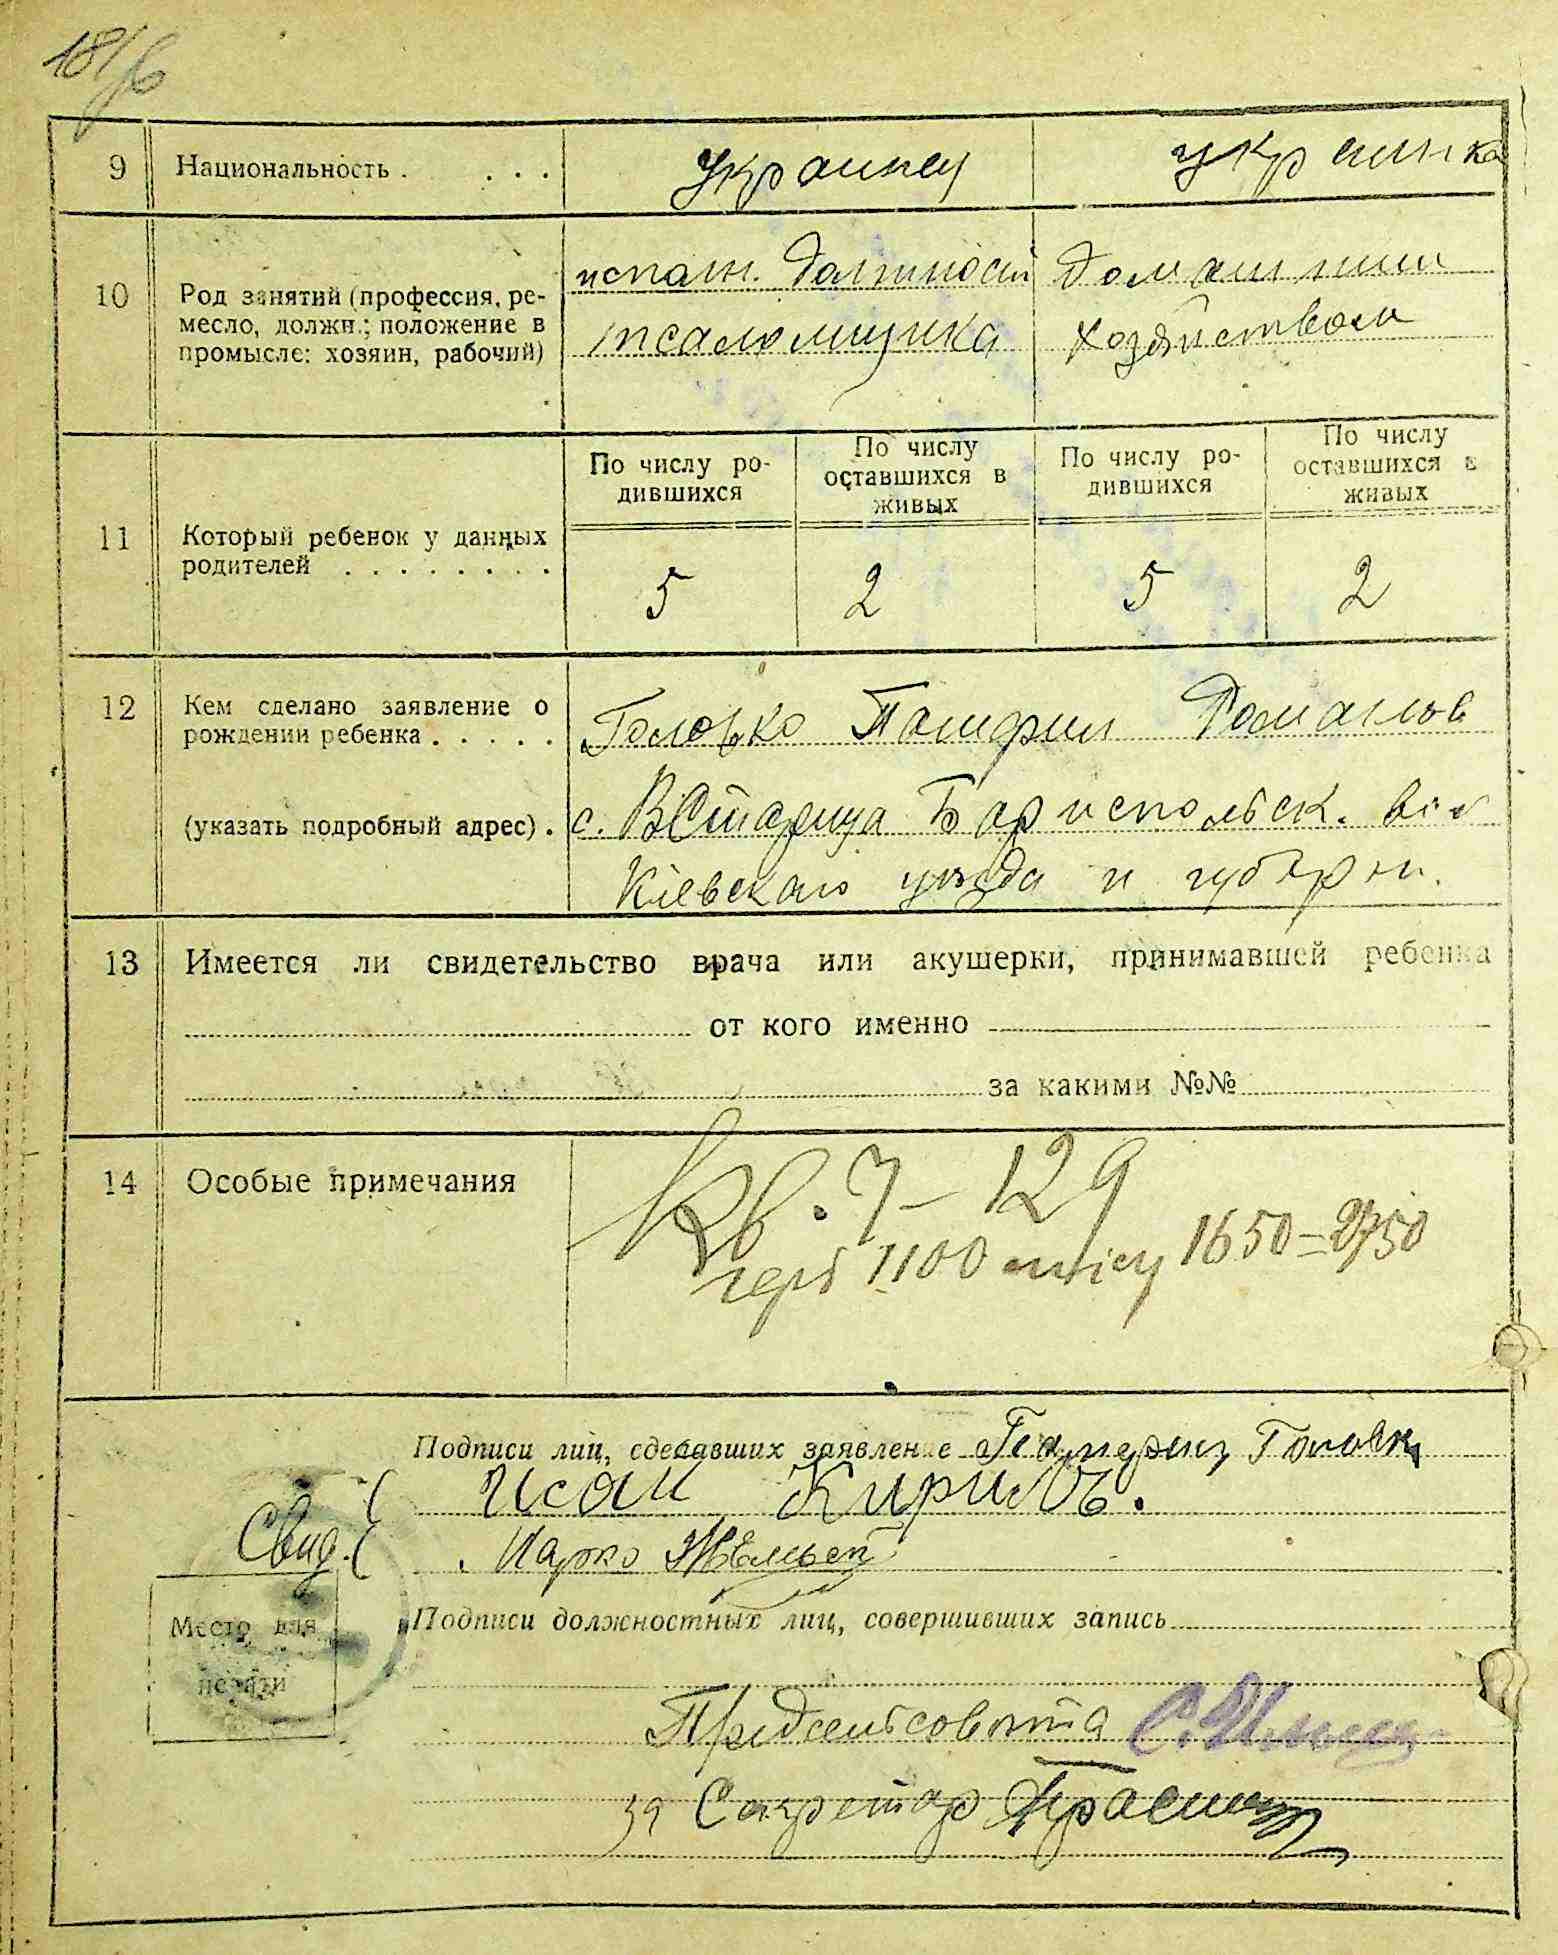 9 Национальность . . . . украинец украинка
10 Род занятий (профессия, ре-
месло, должн.; положение в
промысле: хозяин, рабочий)
исполн. должност
псаломщика
домашним
хозяйством
11 Который ребенок у данных
родителей . . . . . . . .
По числу ро-
дившихся
По числу
оставшихся в
живых
По числу ро-
дившихся
По числу
оставшихся в
живых
5 2 5 2
12 Кем сделано заявление о
рождении ребенка . . . . .
(указать подробный адрес) .
Головко Памфил Романов
с. ВСтарица Бариспольск. вол
Кіевскаго уѣзда и губерн.
13 Имеется ли свидетельство врача или акушерки, принимавшей ребенка
от кого именно
за какими №№
14 Особые примечания
Кв. 7-129
герб 1100 1650=2750
Подписи лиц, сделавших заявление Головк
Исаи Кирилъ.
Свид. Марко
Подписи должностных лиц, совершивших запись
Место для
печати
Предсельсовѣта
Секретар